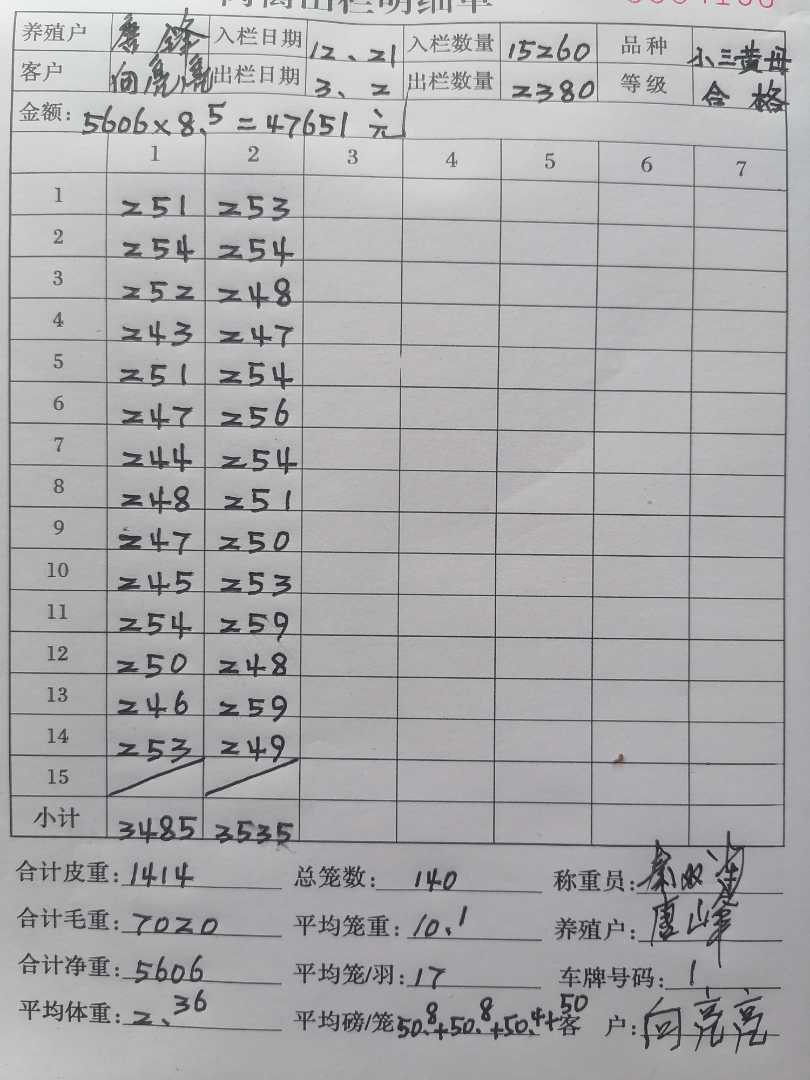 养殖户 唐锋 入栏日期 12、21 入栏数量 15260 品种 小三黄母
客户 向亮亮 出栏日期 3、2 出栏数量 2380 等级 合格
金额: 5606×8.5=47651元
1 2 3 4 5 6 7
1 251 253
2 254 254
3 252 248
4 243 247
5 251 254
6 247 256
7 244 254
8 248 251
9 247 250
10 245 253
11 254 259
12 250 248
13 246 259
14 253 249
15
小计 3485 3535
合计皮重: 1414 总笼数: 140 称重员:
合计毛重: 7020 平均笼重: 10.1 养殖户: 唐峰
合计净重: 5606 平均笼/羽: 17 车牌号码: 1
平均体重: 2.36 平均磅/笼 50.8+50.8+50.4+50 客户: 向亮亮